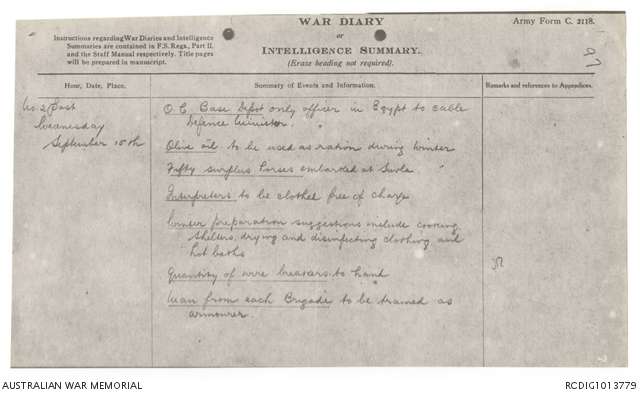 WAR DIARY
or
INTELLIGENCE SUMMARY.
(Erase heading not required).
Army Form C. 2118.
Instructions regarding War Diaries and Intelligence
Summaries are contained in F.S. Regs., Part II.
and the Staff Manual respectively. Title pages
will be prepared in manuscript.
97
Hour, Date, Place.
Summary of Events and Information.
Remarks and references to Appendices.
No. 2 Post
Wednesday
September 15th
O.C. Base Depot only officer in Egypt to cable
Defence Minister.
Olive oil to be used as ration during Winter
Fifty surplus horses embarked at Suvla
Interpreters to be clothed free of charge
Winter preparation suggestions include cooking
shelters, drying and disinfecting clothing and
hot baths
Quantity of wire to hand
Man from each Brigade to be trained as
armourer.
AUSTRALIAN WAR MEMORIAL
RCDIG1013779